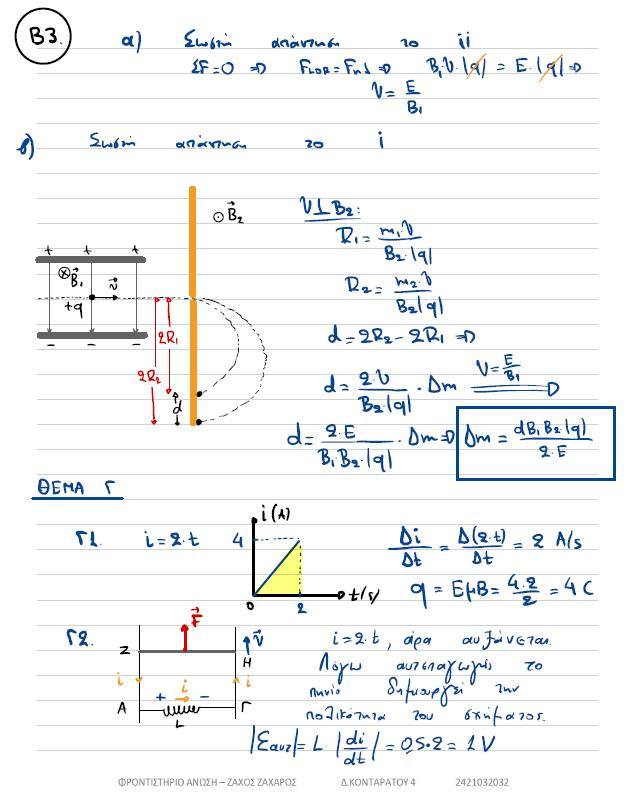 B3.
α) Σωστή απάντηση το ii
ΣF=0 ⇒ F_LOR = F_ηλ ⇒ B₁·υ·|q| = E·|q| ⇒
υ = E/B₁
β) Σωστή απάντηση το i
⊙B⃗₂
υ⊥B₂:
R₁ = m₁·υ / B₂·|q|
+ + +
⊗B⃗₁ υ⃗
+q
- - -
R₂ = m₂·υ / B₂|q|
2R₁
2R₂
d
d = 2R₂ - 2R₁ ⇒
d = 2·υ / B₂·|q| · Δm υ=E/B₁ ⇒
d = 2·E / B₁·B₂·|q| · Δm ⇒ Δm = dB₁B₂·|q| / 2·E
ΘΕΜΑ Γ
Γ1. i=2·t
i(A)
4
0 2 t(s)
Δi/Δt = Δ(2·t)/Δt = 2 A/s
q = Εμβ = 4·2/2 = 4 C
Γ2.
F⃗
Z H υ⃗
i i i
+ -
A L Γ
i=2·t, άρα αυξάνεται.
Λόγω αυτεπαγωγής το
πηνίο δημιουργεί την
πολικότητα του σχήματος.
|Εαυτ| = L·|di/dt| = 0,5·2 = 1V
ΦΡΟΝΤΙΣΤΗΡΙΟ ΑΝΩΣΗ – ΖΑΧΟΣ ΖΑΧΑΡΟΣ Δ.ΚΟΝΤΑΡΑΤΟΥ 4 2421032032